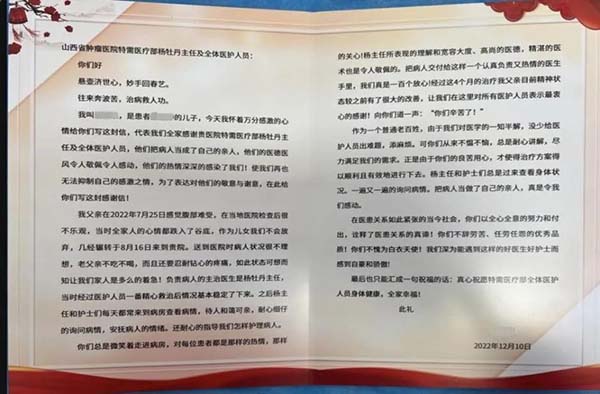 山西省肿瘤医院特需医疗部杨牡丹主任及全体医护人员：
你们好
悬壶济世心，妙手回春艺。
往来奔波苦，治病救人功。
我叫，是患者的儿子，今天我怀着万分感激的心
情给你们写这封信，代表我们全家感谢贵院特需医疗部杨牡丹主
任及全体医护人员，他们把病人当成了自己的亲人，他们的医德医
风令人敬佩令人感动，他们的热情深深的感染了我们！使我们再也
无法抑制自己的感激之情，为了表达对他们的敬意与谢意，在此给
你们写这封感谢信！
我父亲在2022年7月25日感觉腹部难受，在当地医院检查后很
不乐观，当时全家人的心情都跌入了谷底，作为儿女我们不会放
弃，几经辗转于8月16日来到贵院。送到医院时病人状况很不理
想，老父亲不吃不喝，而且还要忍耐钻心的疼痛，如此状态可想而
知让我们家人是多么的着急！负责病人的主治医生是杨牡丹主任，
当时经过医护人员一番精心救治后情况基本稳定了下来。之后杨主
任和护士们每天都常来到病房查看病情，待人和蔼可亲，耐心细仔
的询问病情，安抚病人的情绪。还耐心的指导我们怎样护理病人。
你们总是微笑着走进病房，对每位患者都是那样的热情，那样
的关心!杨主任所表现的理解和宽容大度、高尚的医德，精湛的医
术也是令人敬佩的。把病人交付给这样一个认真负责又热情的医生
手里，我们真是一百个放心!经过这4个月的治疗我父亲目前精神状
态较之前有了很大的改善，让我们在这里对所有医护人员表示最衷
心的感谢！向你们道一声：“你们辛苦了！”
作为一个普通老百姓，由于我们对医学的一知半解，没少给医
护人员出难题，添麻烦。可你们从来不愠不恼，总是耐心讲解，尽
力满足我们的需求。正是由于你们的良苦用心，才使得治疗方案得
以顺利且有效地进行下去。杨主任和护士们总是过来查看身体状
况。一遍又一遍的询问病情。把病人当做了自己的亲人，真是令我
们感动。
在医患关系如此紧张的当今社会，你们以全心全意的努力和付
出，诠释了医患关系的真谛！你们不辞劳苦、任劳任怨的优秀品
质！你们不愧为白衣天使！我们深为能遇到这样的好医生好护士而
感到自豪和骄傲！
最后也只能汇成一句祝福的话：真心祝愿特需医疗部全体医护
人员身体健康，全家幸福！
此礼
2022年12月10日